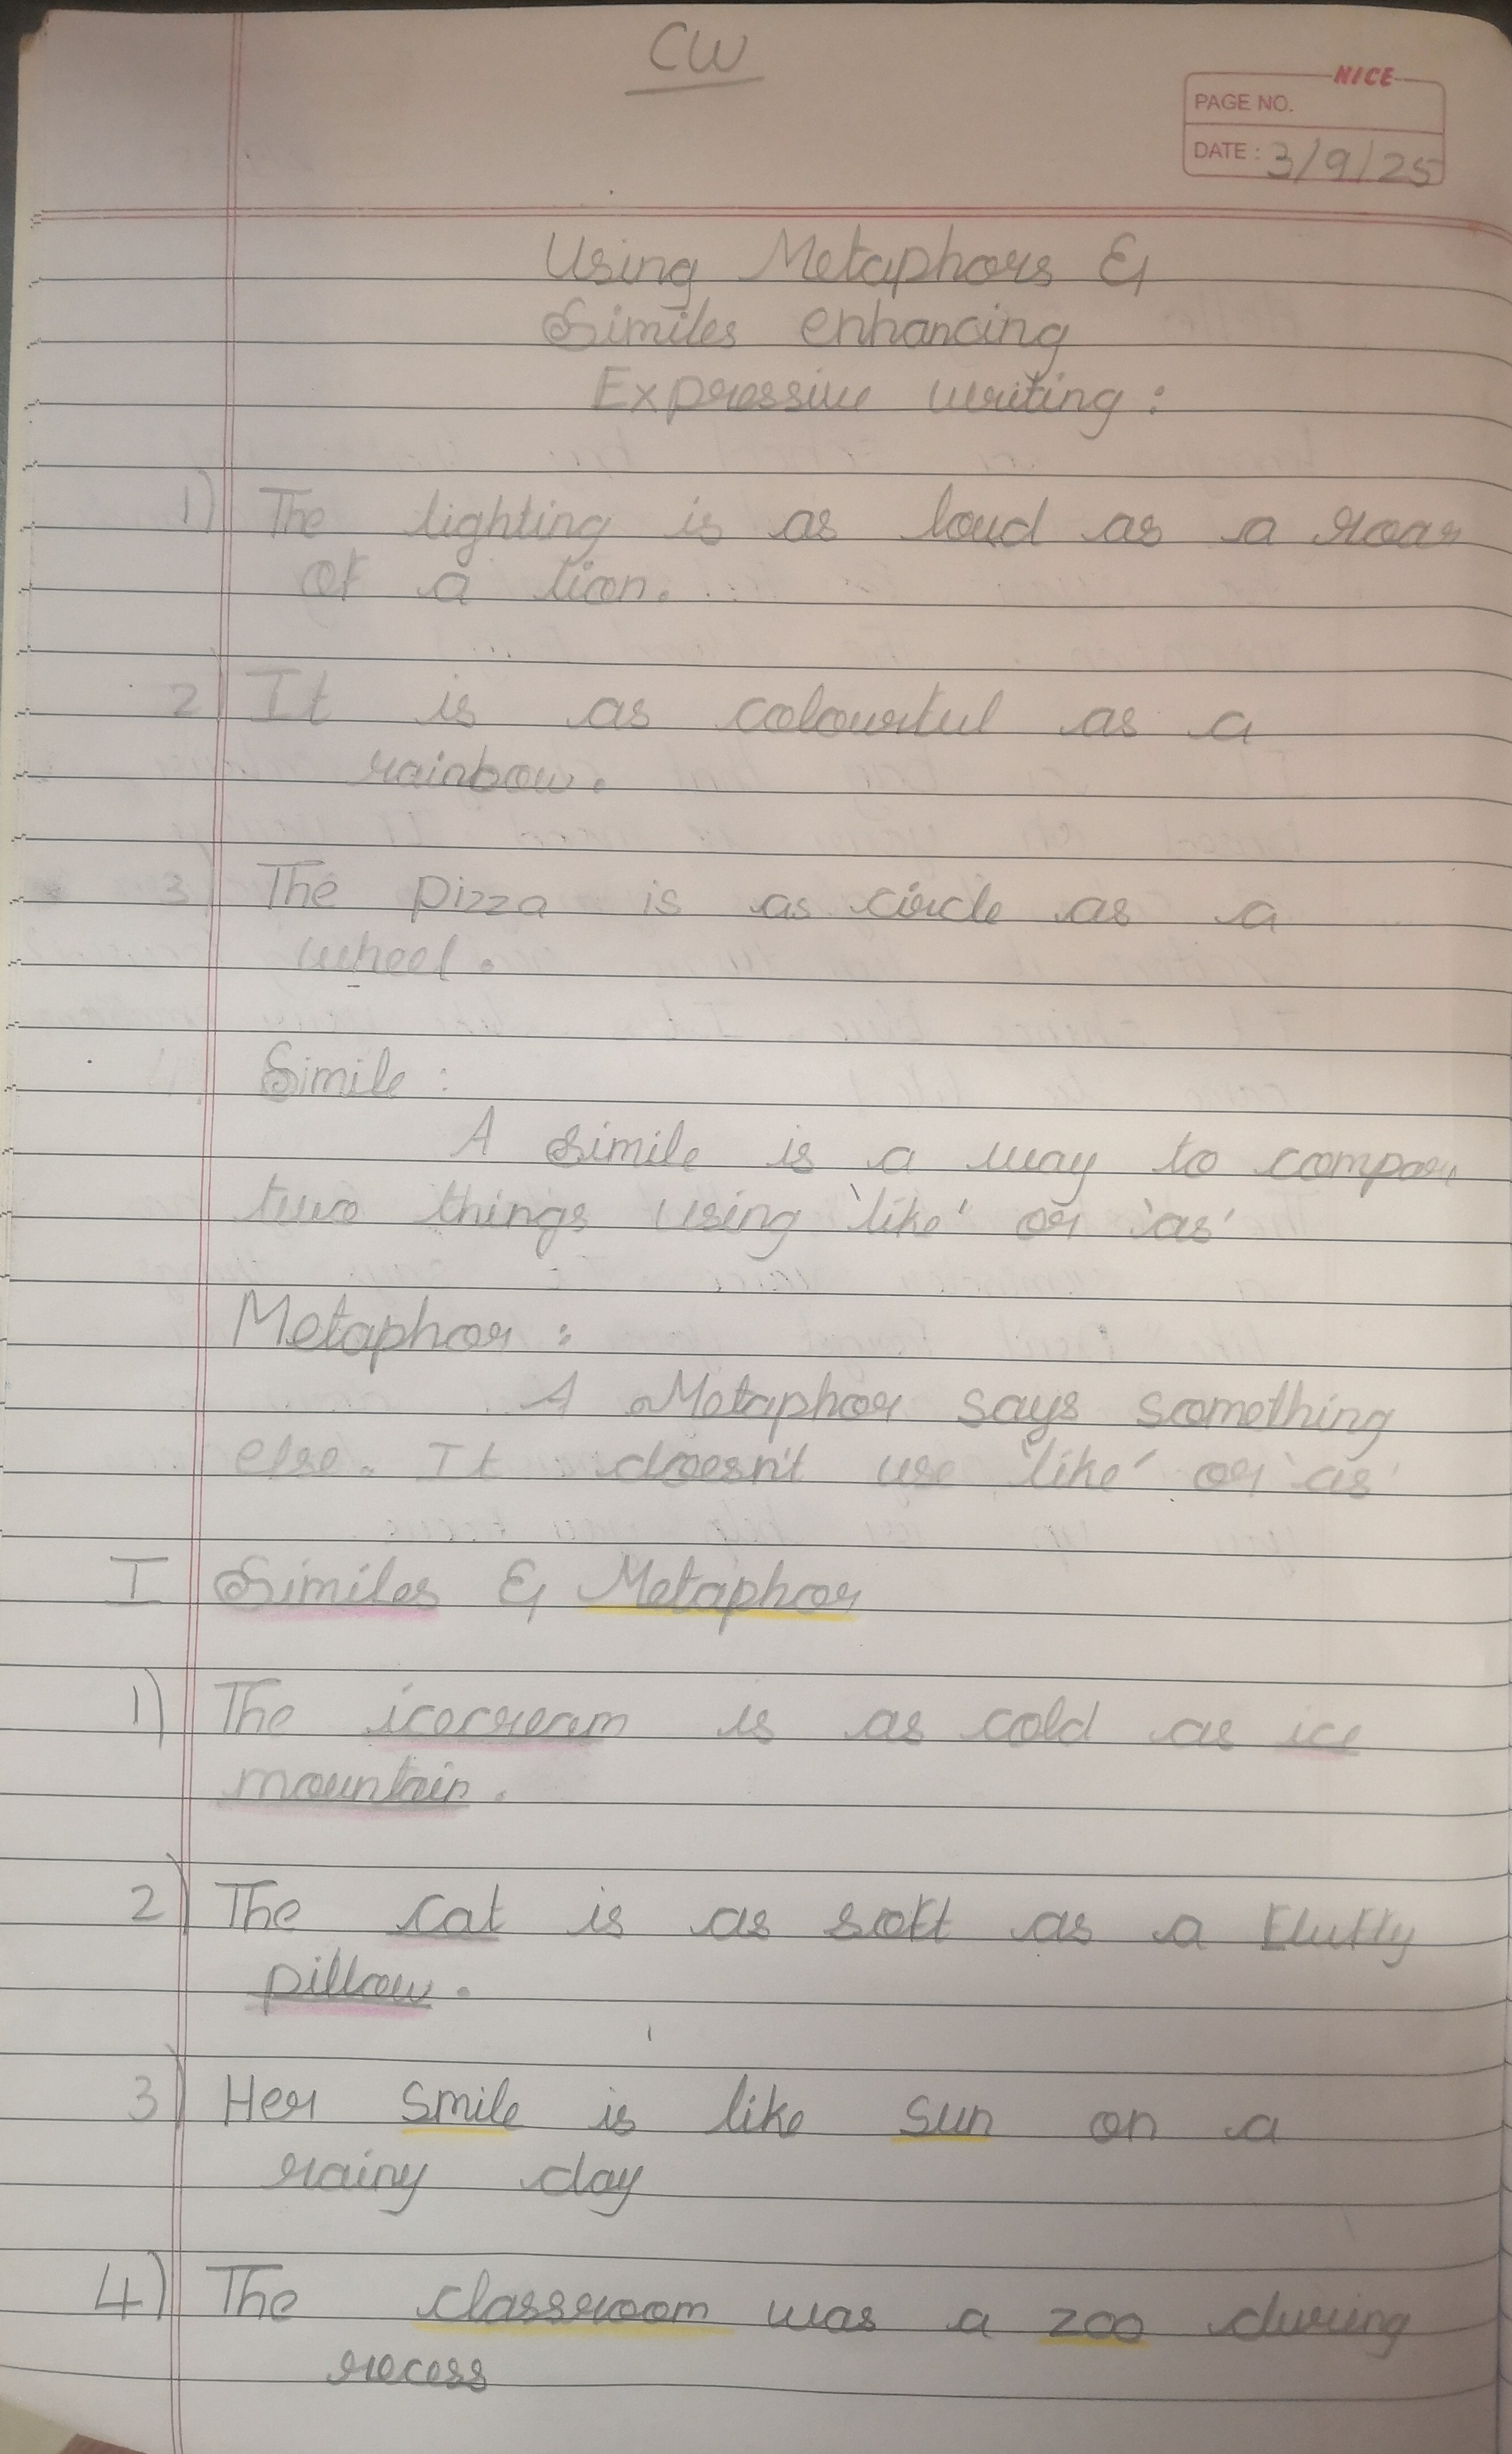 CW
NICE
PAGE NO.
DATE : 3/9/25
Using Metaphors &
Similes enhancing
Expressive writing :
1) The lighting is as loud as a roar
of a lion.
2) It is as colourful as a
rainbow.
3) The pizza is as circle as a
wheel.
Simile :
A simile is a way to compare
two things using 'like' or 'as'
Metaphor :
A Metaphor says something
else. It doesn't use 'like' or 'as'
I Similes & Metaphor
1) The icecream is as cold as ice
mountain.
2) The cat is as soft as a fluffy
pillow.
3) Her smile is like sun on a
rainy day
4) The classroom was a zoo during
recess